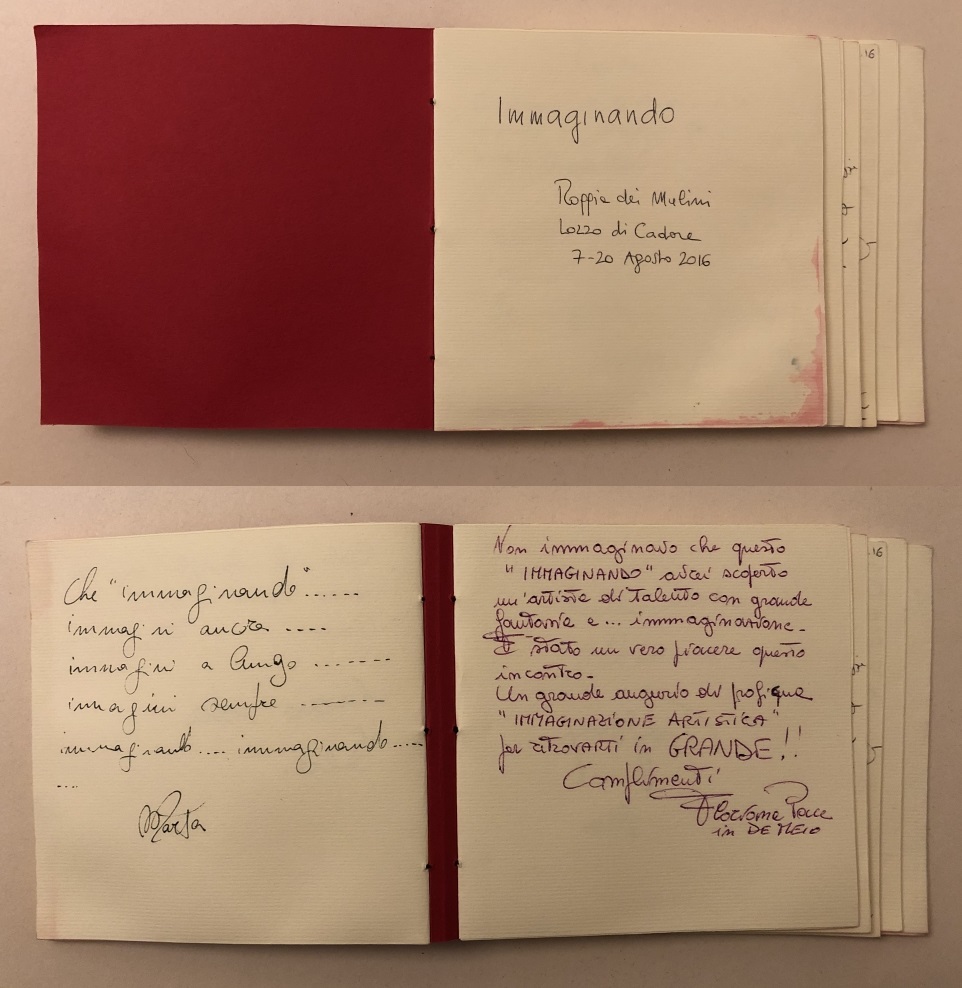 Immaginando
Roggia dei Mulini
Lozzo di Cadore
7-20 Agosto 2016
16
Che "immaginando"......
immagini ancora ....
immagini a lungo .......
immagini sempre ........
immaginando.... immaginando.....
....
Marta
Non immaginavo che questo
"IMMAGINANDO" avrei scoperto
un'artista di talento con grande
fantasia e... immaginazione.
È stato un vero piacere questo
incontro.
Un grande augurio di proficua
"IMMAGINAZIONE ARTISTICA"
per ritrovarti in GRANDE!!
Complimenti
in DE MEIO
16